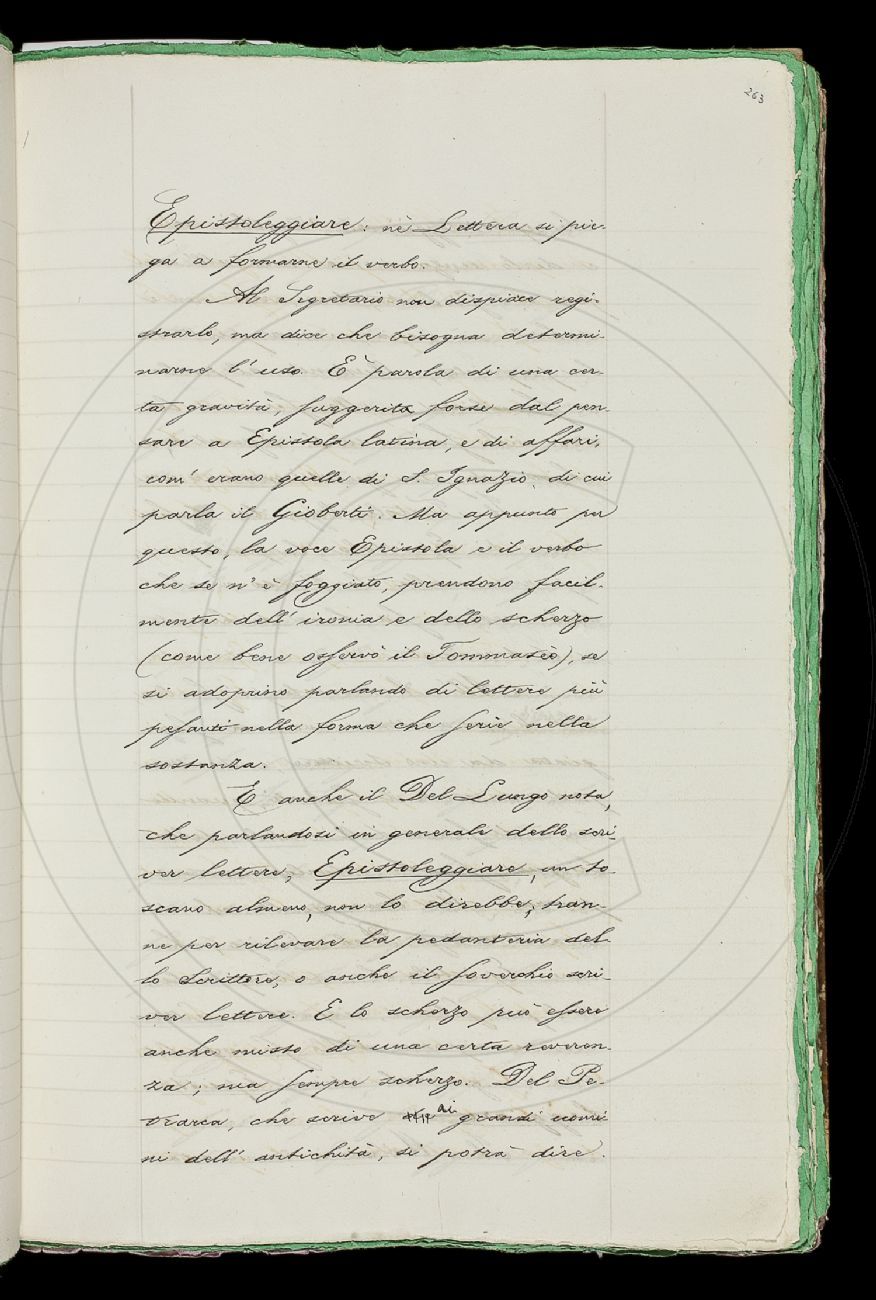 263
Epistoleggiare: nè Lettera si pie-
ga a formarne il verbo.
Al Segretario non dispiace regi-
strarlo, ma dice che bisogna determi-
narne l'uso. È parola di una cer-
ta gravità, suggerita forse dal pen-
sare a Epistola latina, e di affari,
com'erano quelle di S. Ignazio, di cui
parla il Gioberti. Ma appunto per
questo, la voce Epistola e il verbo
che se n'è foggiato, prendono facil-
mente dell'ironia e dello scherzo
(come bene osservò il Tommasèo), se
si adoprino parlando di lettere più
pesanti nella forma che serie nella
sostanza.
E anche il Del Lungo nota,
che parlandosi in generale dello scri-
ver lettere, Epistoleggiare, un to-
scano almeno, non lo direbbe, tran-
ne per rilevare la pedanteria del-
lo Scrittore, o anche il soverchio scri-
ver lettere. E lo scherzo può essere
anche misto di una certa reveren-
za; ma sempre scherzo. Del Pe-
trarca, che scrive ai grandi uomi-
ni dell'antichità, si potrà dire.